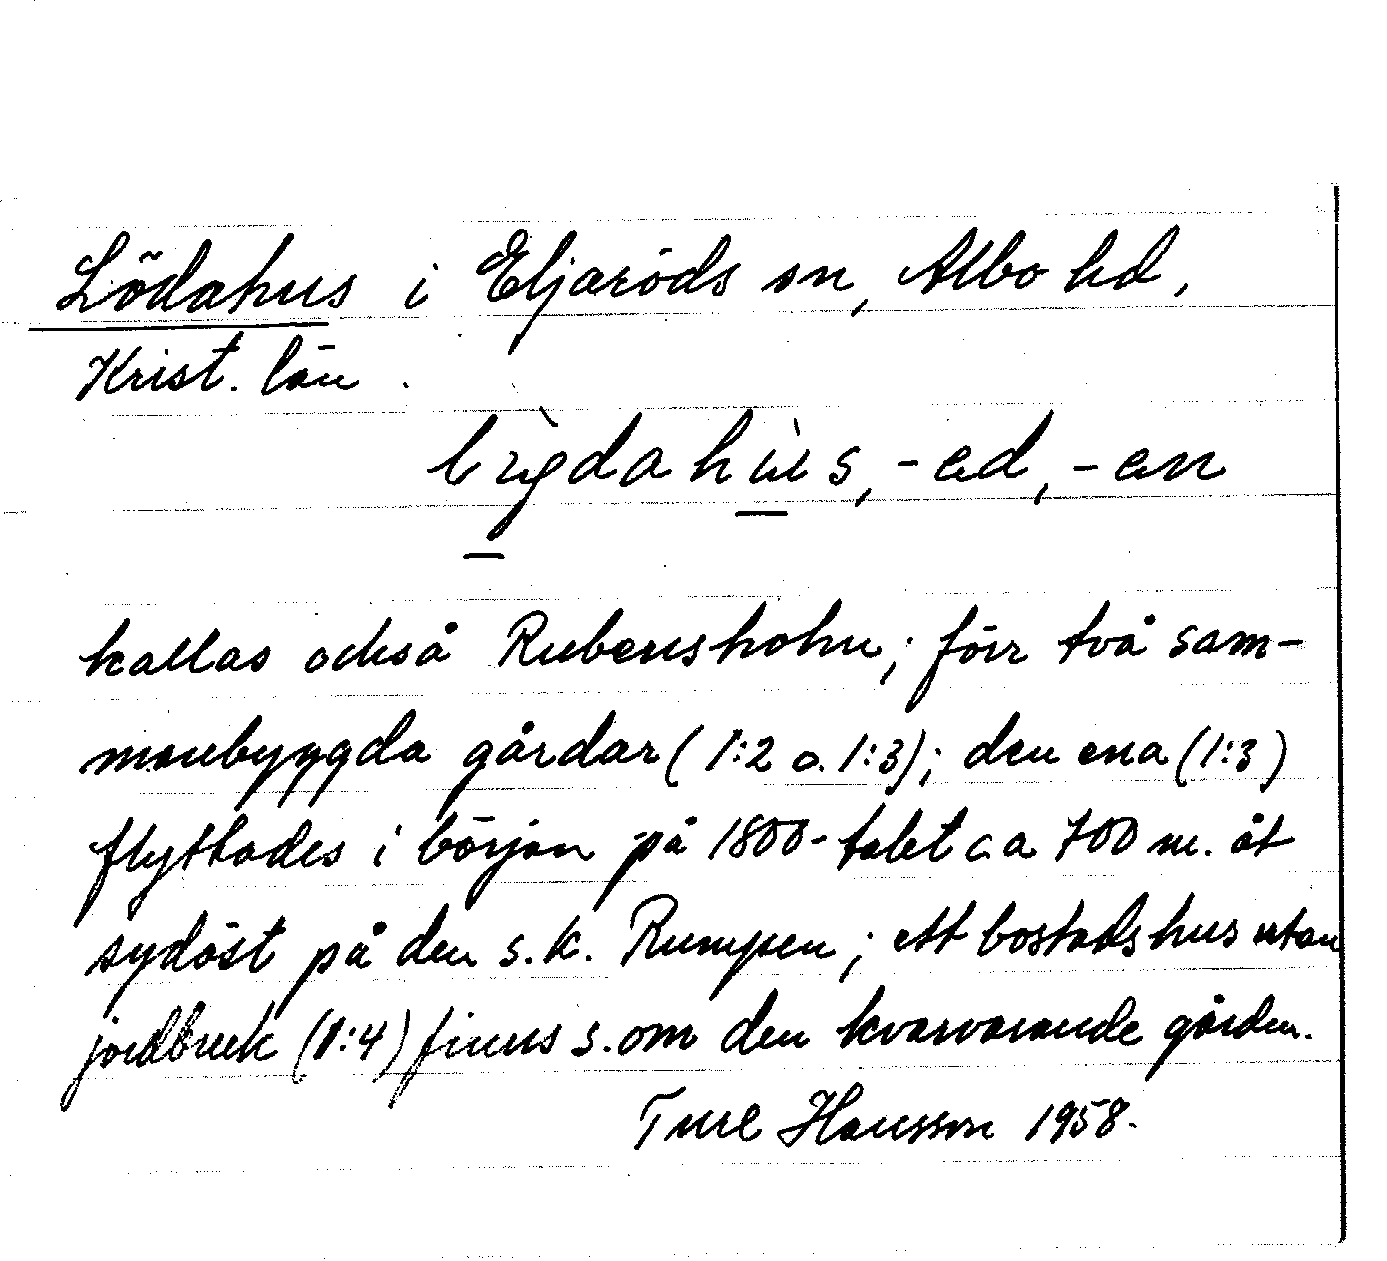 Lödahus i Eljaröds sn, Albo hd,
Krist. län.
-ed, -en
kallas också Rubensholm; förr två sam-
manbyggda gårdar (1:2 o. 1:3); den ena (1:3)
flyttades i början på 1800-talet ca 700 m. åt
sydöst på den s.k. Rumpen; ett bostadshus utan
jordbruk (1:4) finns s.om den kvarvarande gården.
Ture Hansson 1958.